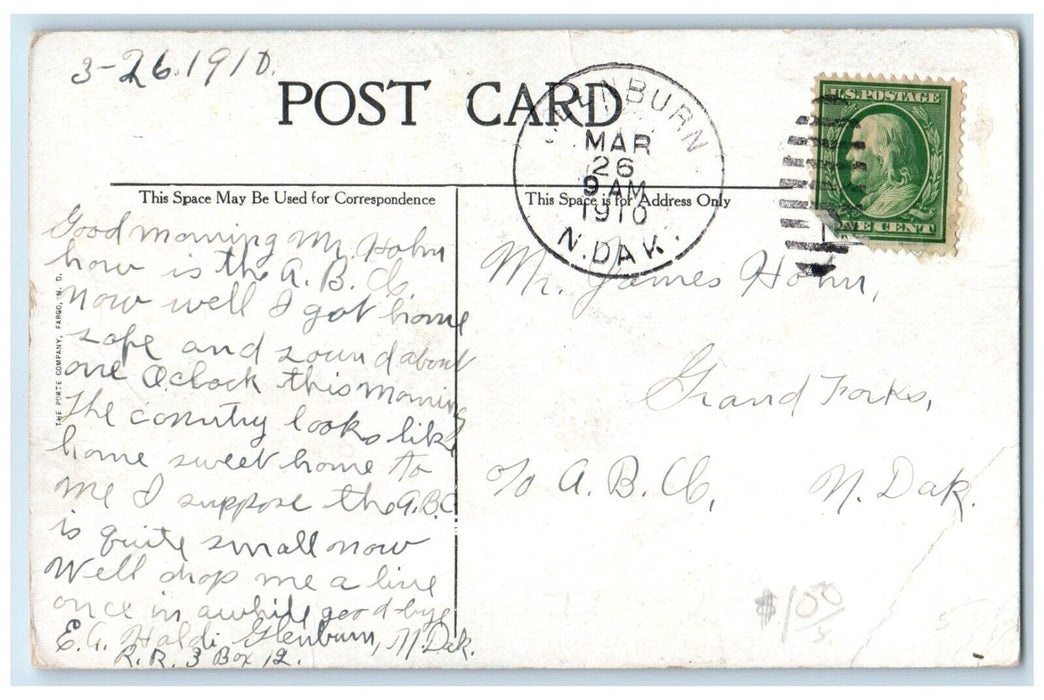 3-26.1910.
POST CARD
GLENBURN
MAR
26
9 AM
1910
N. DAK.
U.S. POSTAGE
ONE CENT
This Space May Be Used for Correspondence
This Space is for Address Only
Good morning Mr. Hohn
how is the A. B. C.
now well I got home
safe and sound about
one Oclock this morning
The country looks like
home sweet home to
me I suppose the A.B.C
is quite small now
Well drop me a line
once in awhile good-bye
E. A. Haldi, Glenburn, N. Dak.
R. R. 3 Box 12.
THE PORTE COMPANY, FARGO, N. D.
Mr. James Hohn,
Grand Forks,
c/o A. B. C., N. Dak.
$1.00
5